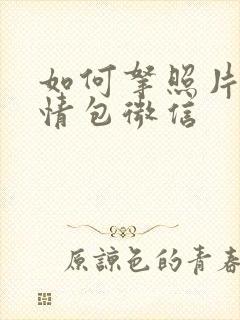 如何拏照片
情包微信
原諒色的青春